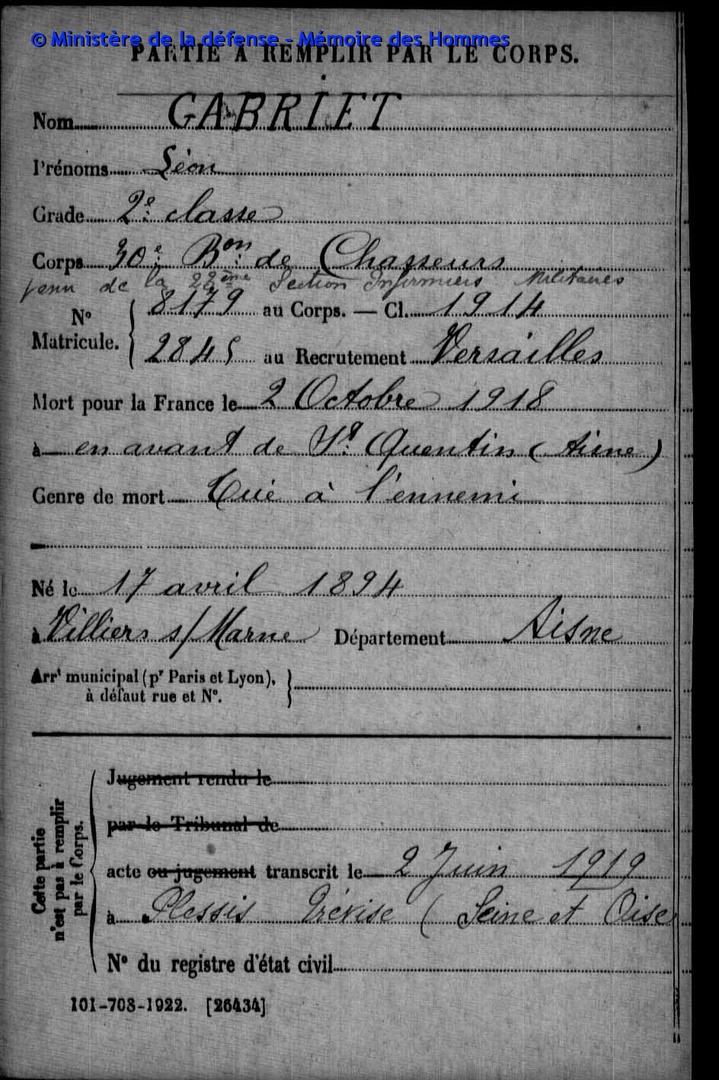 © Ministère de la défense - Mémoire des Hommes
PARTIE A REMPLIR PAR LE CORPS.
Nom GABRIET
Prénoms Léon
Grade 2e classe
Corps 30e Bon de Chasseurs
venu de la 22ème Section Infirmiers Militaires
N° Matricule. { 8179 au Corps. — Cl. 1914
2845 au Recrutement Versailles
Mort pour la France le 2 Octobre 1918
à en avant de St Quentin (Aisne)
Genre de mort Tué à l'ennemi
Né le 17 avril 1894
à Villiers s/Marne Département Aisne
Arrt municipal (pr Paris et Lyon), }
à défaut rue et N°.
Cette partie n'est pas à remplir par le Corps.
Jugement rendu le
par le Tribunal de
acte ou jugement transcrit le 2 Juin 1919
à Plessis Trévise (Seine et Oise
N° du registre d'état civil
101-708-1922. [26434]